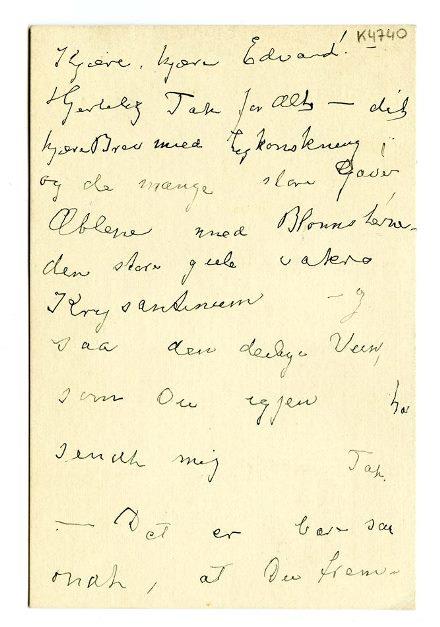 K4740
Kjære, kjære Edvard! –
Hjertelig Tak for Alt – dit
kjære Brev med Lykønskning
og de mange store Gaver
Æblene med Blomsterne –
den store gule vakre
Krysantimum – og
saa den deilige Vin,
som Du igjen har
sendt mig Tak.
– Det er bare saa
ondt, at Du frem-